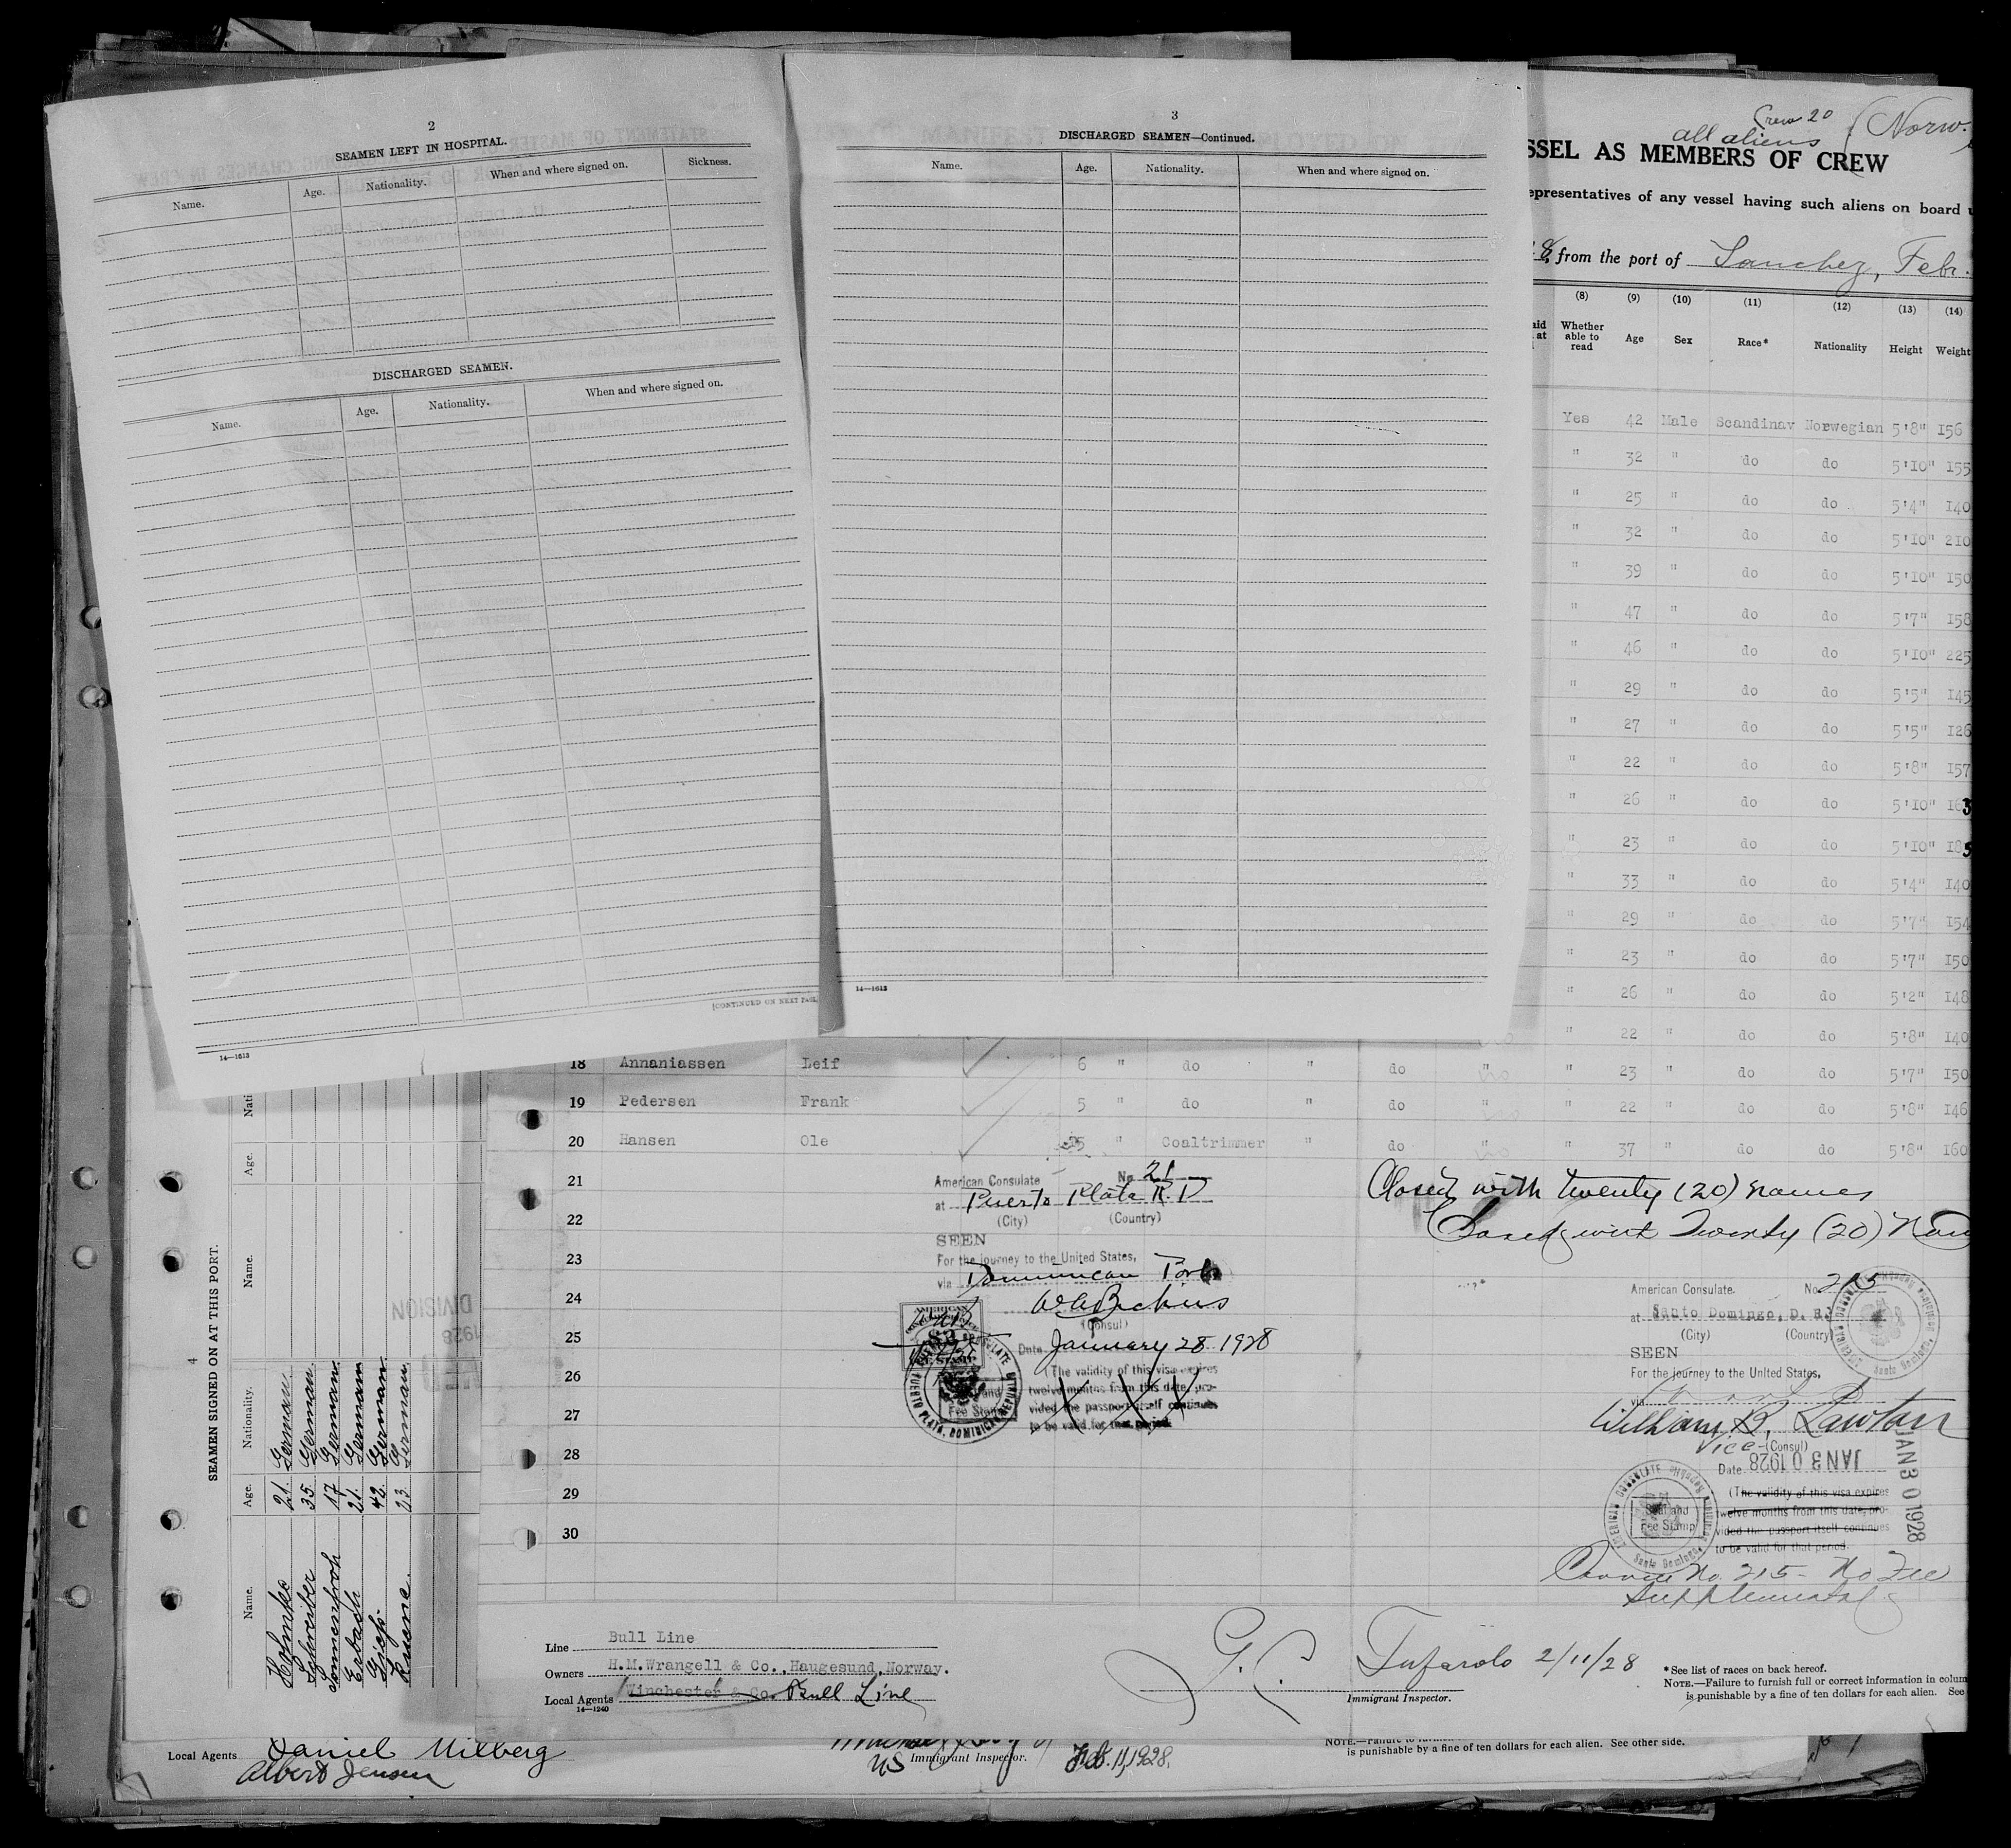 2
SEAMEN LEFT IN HOSPITAL.
Name. Age. Nationality. When and where signed on. Sickness.
DISCHARGED SEAMEN.
Name. Age. Nationality. When and where signed on.
[CONTINUED ON NEXT PAGE
14—1613
3
DISCHARGED SEAMEN—Continued.
Name. Age. Nationality. When and where signed on.
14—1613
Crew 20
all aliens (Norw.
SSEL AS MEMBERS OF CREW
epresentatives of any vessel having such aliens on board u
8, from the port of Sanchez, Febr.
(8) (9) (10) (11) (12) (13) (14)
Whether able to read Age Sex Race* Nationality Height Weight
Yes 42 Male Scandinav Norwegian 5'8" 156
" 32 " do do 5'10" 155
" 25 " do do 5'4" 140
" 32 " do do 5'10" 210
" 39 " do do 5'10" 150
" 47 " do do 5'7" 158
" 46 " do do 5'10" 225
" 29 " do do 5'5" 145
" 27 " do do 5'5" 126
" 22 " do do 5'8" 157
" 26 " do do 5'10" 163
" 23 " do do 5'10" 185
" 33 " do do 5'4" 140
" 29 " do do 5'7" 154
" 23 " do do 5'7" 150
" 26 " do do 5'2" 148
" 22 " do do 5'8" 140
18 Annaniassen Leif 6 " do " do " no " 23 " do do 5'7" 150
19 Pedersen Frank 5 " do " do " no " 22 " do do 5'8" 146
20 Hansen Ole " Coaltrimmer " do " no " 37 " do do 5'8" 160
21
22
23
24
25
26
27
28
29
30
American Consulate No 21
at Puerto Plata R.D
(City) (Country)
SEEN
For the journey to the United States,
via Dominican Ports
(Consul)
Date January 28 1928
(The validity of this visa expires
twelve months from this date, pro-
vided the passport itself continues
to be valid for that period.
Fee Stamp
PUERTO PLATA, DOMINICAN REPUBLIC
Closed with twenty (20) names
Closed with Twenty (20) Nam
American Consulate. No. 215
at Santo Domingo, D. R.
(City) (Country)
SEEN
For the journey to the United States,
via
William B. Lawton
Vice-(Consul)
Date JAN 30 1928
JAN 30 1928
(The validity of this visa expires
twelve months from this date, pro-
vided the passport itself continues
to be valid for that period.
AMERICAN CONSULATE GENERAL
Seal and
Fee Stamp
Santo Domingo,
No. 215 - No Fee
Supplemental
Line Bull Line
Owners H.M.Wrangell & Co., Haugesund, Norway.
Local Agents Winchester & Co. Bull Line
14—1240
G. C. Tufarolo 2/11/28
Immigrant Inspector.
*See list of races on back hereof.
NOTE.—Failure to furnish full or correct information in colum
is punishable by a fine of ten dollars for each alien. See
4
SEAMEN SIGNED ON AT THIS PORT.
Name. Age. Nationality. Name. Age. Nati
21. German.
Schreiber 35. German.
17. German.
Erbach 21. German
42. German.
23. German.
DIVISION
1928
Local Agents Daniel Milberg
Albert Jensen
US Immigrant Inspector. Feb. 11, 1928.
NOTE.—Failure to furnish full or correct information in colum
is punishable by a fine of ten dollars for each alien. See other side.